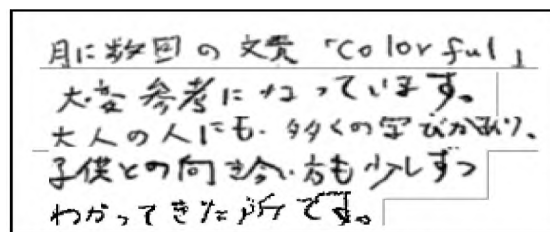 月に数回の文章「Colorful」
大変参考になっています。
大人の人にも、多くの学びがあり、
子供との向き合い方も少しずつ
わかってきた所です。